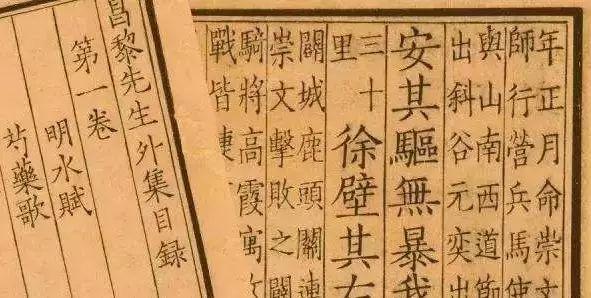 年正月命崇文
師行營兵馬使
與山南西道節
出斜谷元奕出
安其驅無暴我
三十
里
徐壁其右
關城鹿頭關連
崇文擊敗之闢
騎將高霞寓攻
戰皆捷
昌黎先生外集目録
第一卷
明水賦
芍藥歌